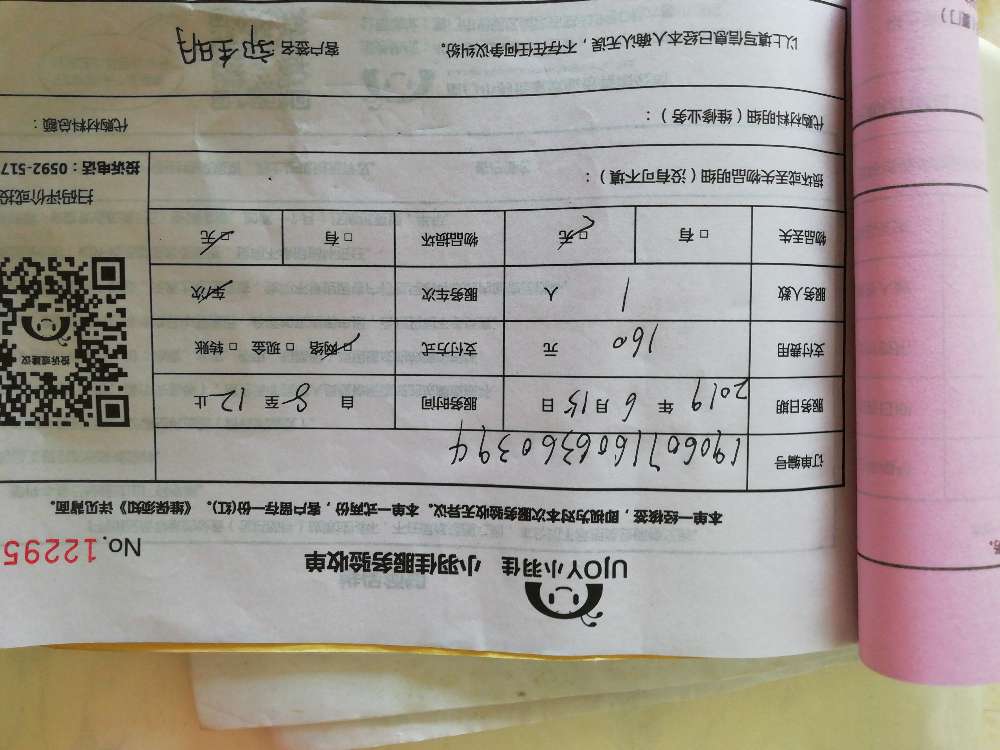 UJOY小羽佳 小羽佳服务验收单
No. 12295
本单一经核签，即视为对本次服务验收无异议。本单一式两份，客户留存一份(红)。《维保须知》详见背面。
订单编号 1906071606360394
服务日期 2019 年 6 月 15 日 服务时间 自 8 至 12 止
支付费用 160 元 支付方式 □网络 □现金 □转账
服务人数 1 人 服务车次 车/次
物品丢失 □有 □无 物品损坏 □有 □无
投诉或建议
扫码评价或投
投诉电话：0592-517
损坏或丢失物品明细（没有可不填）：
代购材料明细（维修业务）：
代购材料总额：
以上填写信息已经本人确认无误，不存在任何争议纠纷。
客户签名